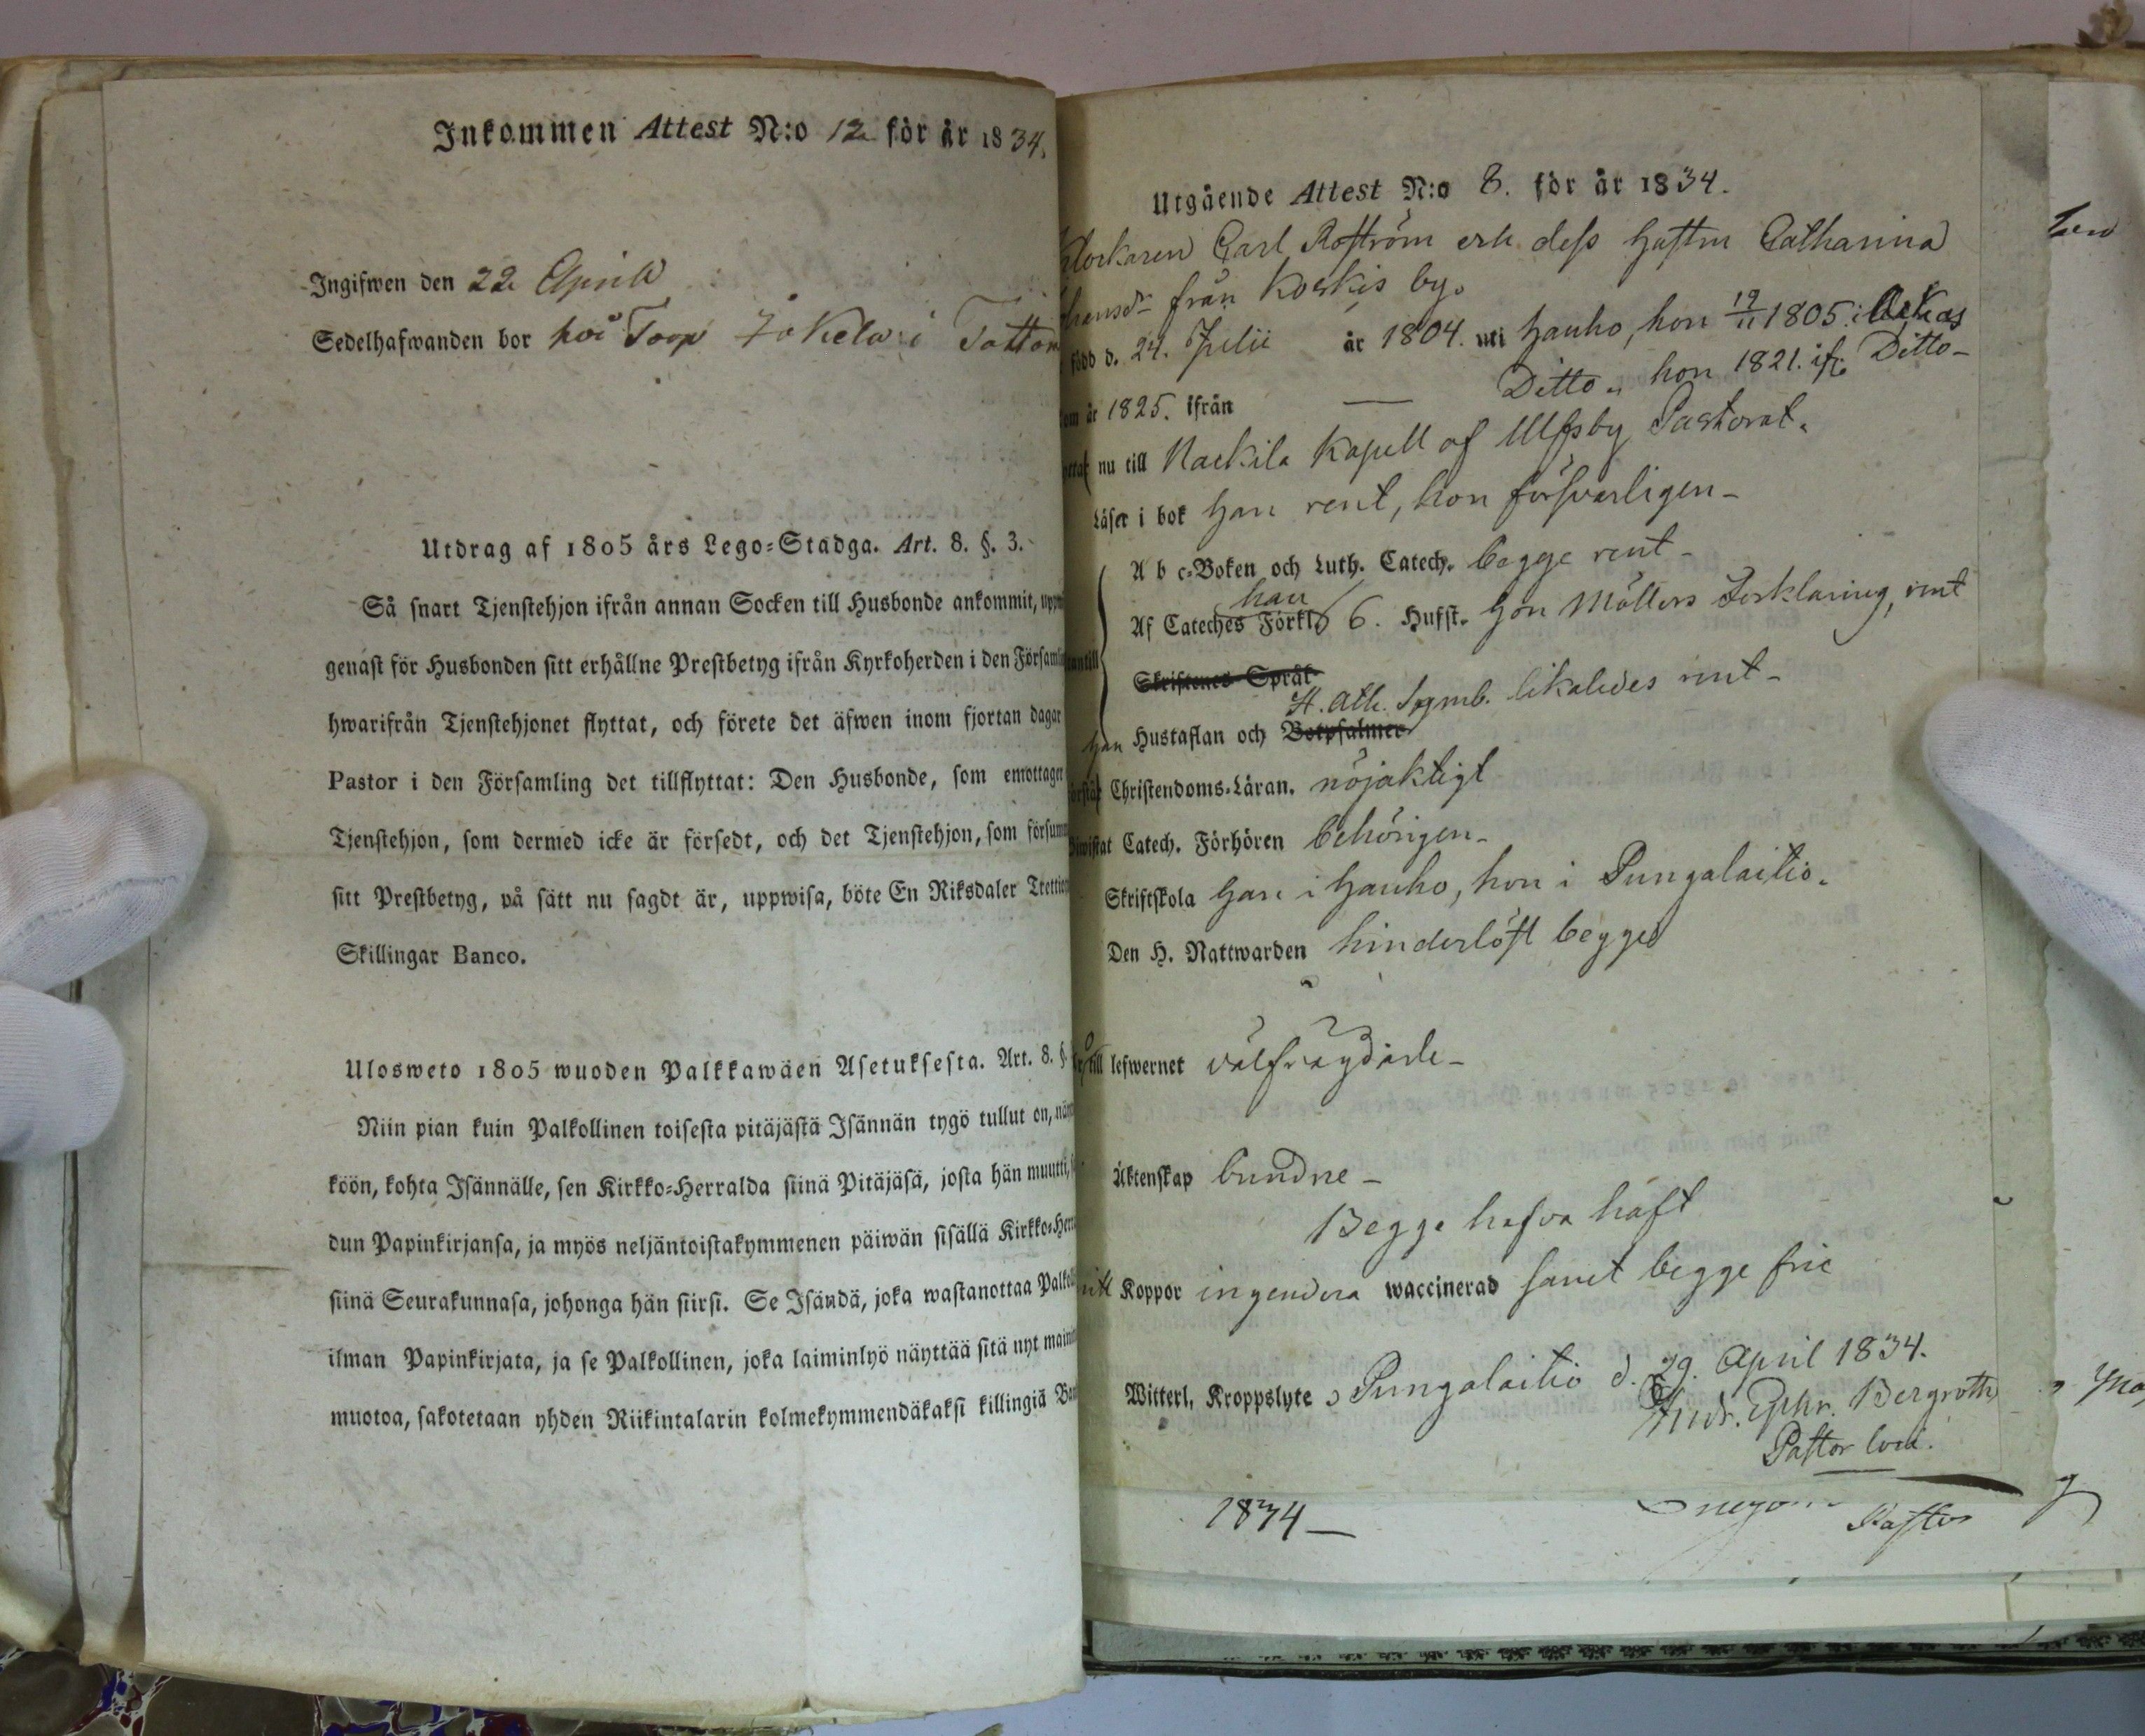 Inkommen Attest N:o 12 för år 1834.
Ingifwen den 22 Aprill
Sedelhafwanden bor hos Torp Jokela i Tattar
Utdrag af 1805 års Lego-Stadga. Art. 8. §. 3.
Så snart Tjenstehjon ifrån annan Socken till Husbonde ankommit,
genast för Husbonden sitt erhållne Prestbetyg ifrån Kyrkoherden i den
hwarifrån Tjenstehjonet flyttat, och förete det äfwen inom fjortan dagar
Pastor i den Församling det tillflyttat: Den Husbonde, som emottager
Tjenstehjon, som dermed icke är försedt, och det Tjenstehjon, som
sitt Prestbetyg, på sätt nu sagdt är, uppwisa, böte En Riksdaler
Skillingar Banco.
Ulosweto 1805 wuoden Palkkawäen Asetuksesta. Art. 8. §.
Niin pian kuin Palkollinen toisesta pitäjästä Isännän tygö tullut on,
köön, kohta Isännälle, sen Kirkko-Herralda siinä Pitäjäsä, josta hän muutti,
dun Papinkirjansa, ja myös neljäntoistakymmenen päiwän sisällä
siinä Seurakunnasa, johonga hän siirsi. Se Isändä, joka wastanottaa
ilman Papinkirjata, ja se Palkollinen, joka laiminlyö näyttää sitä nyt
muotoa, sakotetaan yhden Riikintalarin kolmekymmendäkaksi killingiä
Utgående Attest N:o 8. för år 1834.
Klockaren Carl Roström och dess Hustru Catharina
från Koskis by.
född d. 24. Julii år 1804. uti Hauho, hon 19/11 1805. i
år 1825. ifrån — Ditto. hon 1821. ifr. Ditto -
nu till Nackila Kapell af Ulfsby Pastorat.
Läser i bok Han rent, hon försvarligen -
A b c-Boken och Luth. Catech. begge rent -
han
Af Cateches Förkl. 6. Hufst. hon Möllers Förklaring, rent
Skriftenes Språk
H. Ath. Symb. likaledes rent -
Hustaflan och Botpsalmer
Christendoms-Läran. nöjaktigt
Catech. Förhören behörigen -
Skriftskola Han i Hauho, hon i Pungalaitio.
Den H. Nattwarden hinderlöst begge
till lefwernet välfrägdade -
Äktenskap bundne -
Begge hafva haft
Koppor ingendera waccinerad samt begge frie
Witterl. Kroppslyte, Pungalaitio d. 29. April 1834.
Andr. Ephr. Bergroth
Pastor loci.
1834 —
Pastor